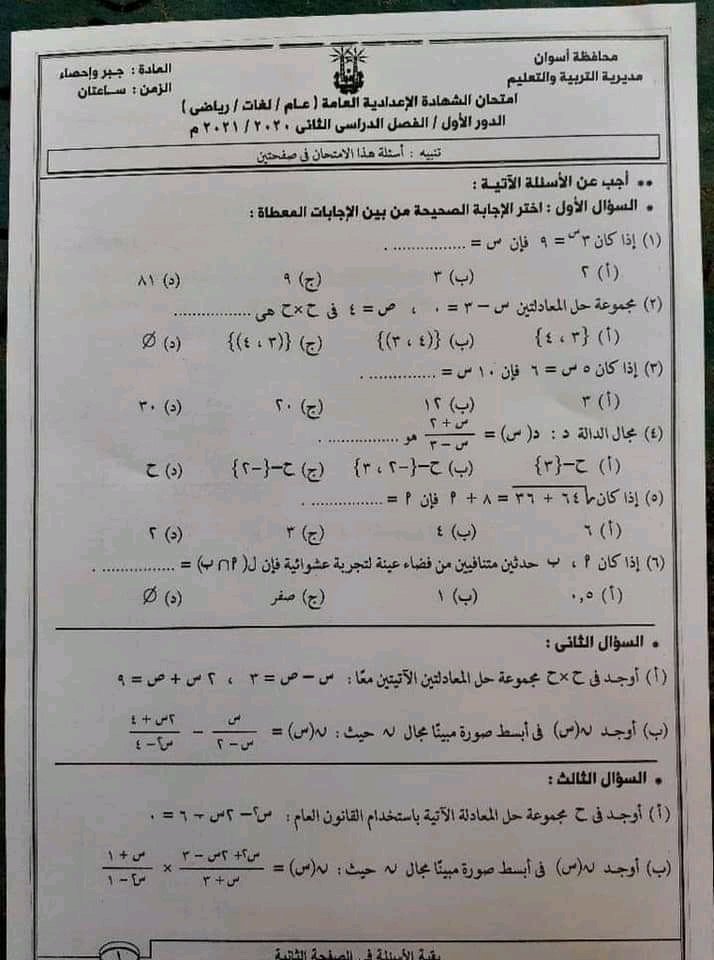 محافظة أسوان
مديرية التربية والتعليم
المادة : جبر وإحصاء
الزمن : ساعتان
امتحان الشهادة الإعدادية العامة ( عام / لغات / رياضى )
الدور الأول / الفصل الدراسى الثانى ٢٠٢٠ / ٢٠٢١ م
تنبيه : أسئلة هذا الامتحان فى صفحتين
** أجب عن الأسئلة الآتية :
* السؤال الأول : اختر الإجابة الصحيحة من بين الإجابات المعطاة :
(١) إذا كان ٣^س = ٩ فإن س = ................ .
(أ) ٢ (ب) ٣ (ج) ٩ (د) ٨١
(٢) مجموعة حل المعادلتين س – ٣ = ٠ ، ص = ٤ فى ح×ح هى ................
(أ) {٣ ، ٤} (ب) {(٤ ، ٣)} (ج) {(٣ ، ٤)} (د) ∅
(٣) إذا كان ٥ س = ٦ فإن ١٠ س = ................ .
(أ) ٣ (ب) ١٢ (ج) ٢٠ (د) ٣٠
(٤) مجال الدالة د : د(س) = (س + ٢)/(س – ٣) هو ................ .
(أ) ح–{٣} (ب) ح–{–٢ ، ٣} (ج) ح–{–٢} (د) ح
(٥) إذا كان √(٦٤ + ٣٦) = ٨ + ٩ فإن ٩ = ................ .
(أ) ٦ (ب) ٤ (ج) ٣ (د) ٢
(٦) إذا كان ٩ ، ب حدثين متنافيين من فضاء عينة لتجربة عشوائية فإن ل(٩ ∩ ب) = ................ .
(أ) ٠,٥ (ب) ١ (ج) صفر (د) ∅
* السؤال الثانى :
(أ) أوجد فى ح×ح مجموعة حل المعادلتين الآتيتين معًا : س – ص = ٣ ، ٢ س + ص = ٩
(ب) أوجد ن(س) فى أبسط صورة مبينًا مجال ن حيث : ن(س) = س/(س – ٢) – (٢س + ٤)/(س٢ – ٤)
* السؤال الثالث :
(أ) أوجد فى ح مجموعة حل المعادلة الآتية باستخدام القانون العام : س٢ – ٢س – ٦ = ٠
(ب) أوجد ن(س) فى أبسط صورة مبينًا مجال ن حيث : ن(س) = (س٢ + ٢س – ٣)/(س + ٣) × (س + ١)/(س٢ – ١)
بقية الأسئلة فى الصفحة الثانية
١